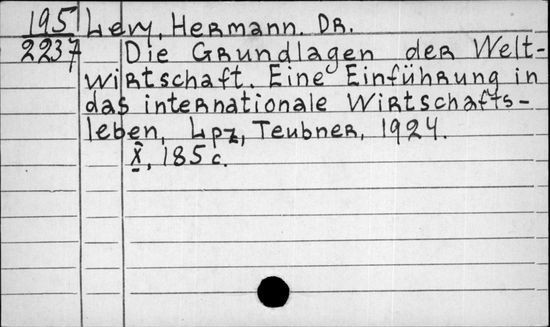 195 Levy, Hermann. DR.
2237 Die Grundlagen der Welt-
wirtschaft. Eine Einführung in
das internationale Wirtschafts-
leben, Lpz, Teubner, 1924.
X, 185 c.